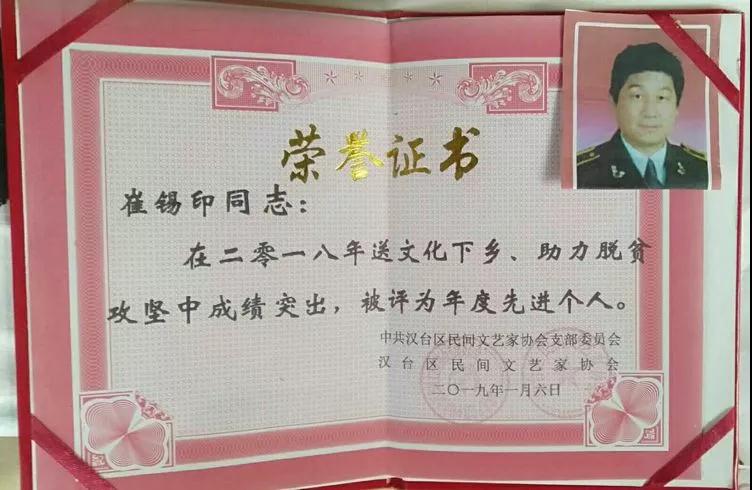 荣誉证书
崔锡印同志：
在二零一八年送文化下乡、助力脱贫
攻坚中成绩突出，被评为年度先进个人。
中共汉台区民间文艺家协会支部委员会
汉台区民间文艺家协会
二〇一九年一月六日